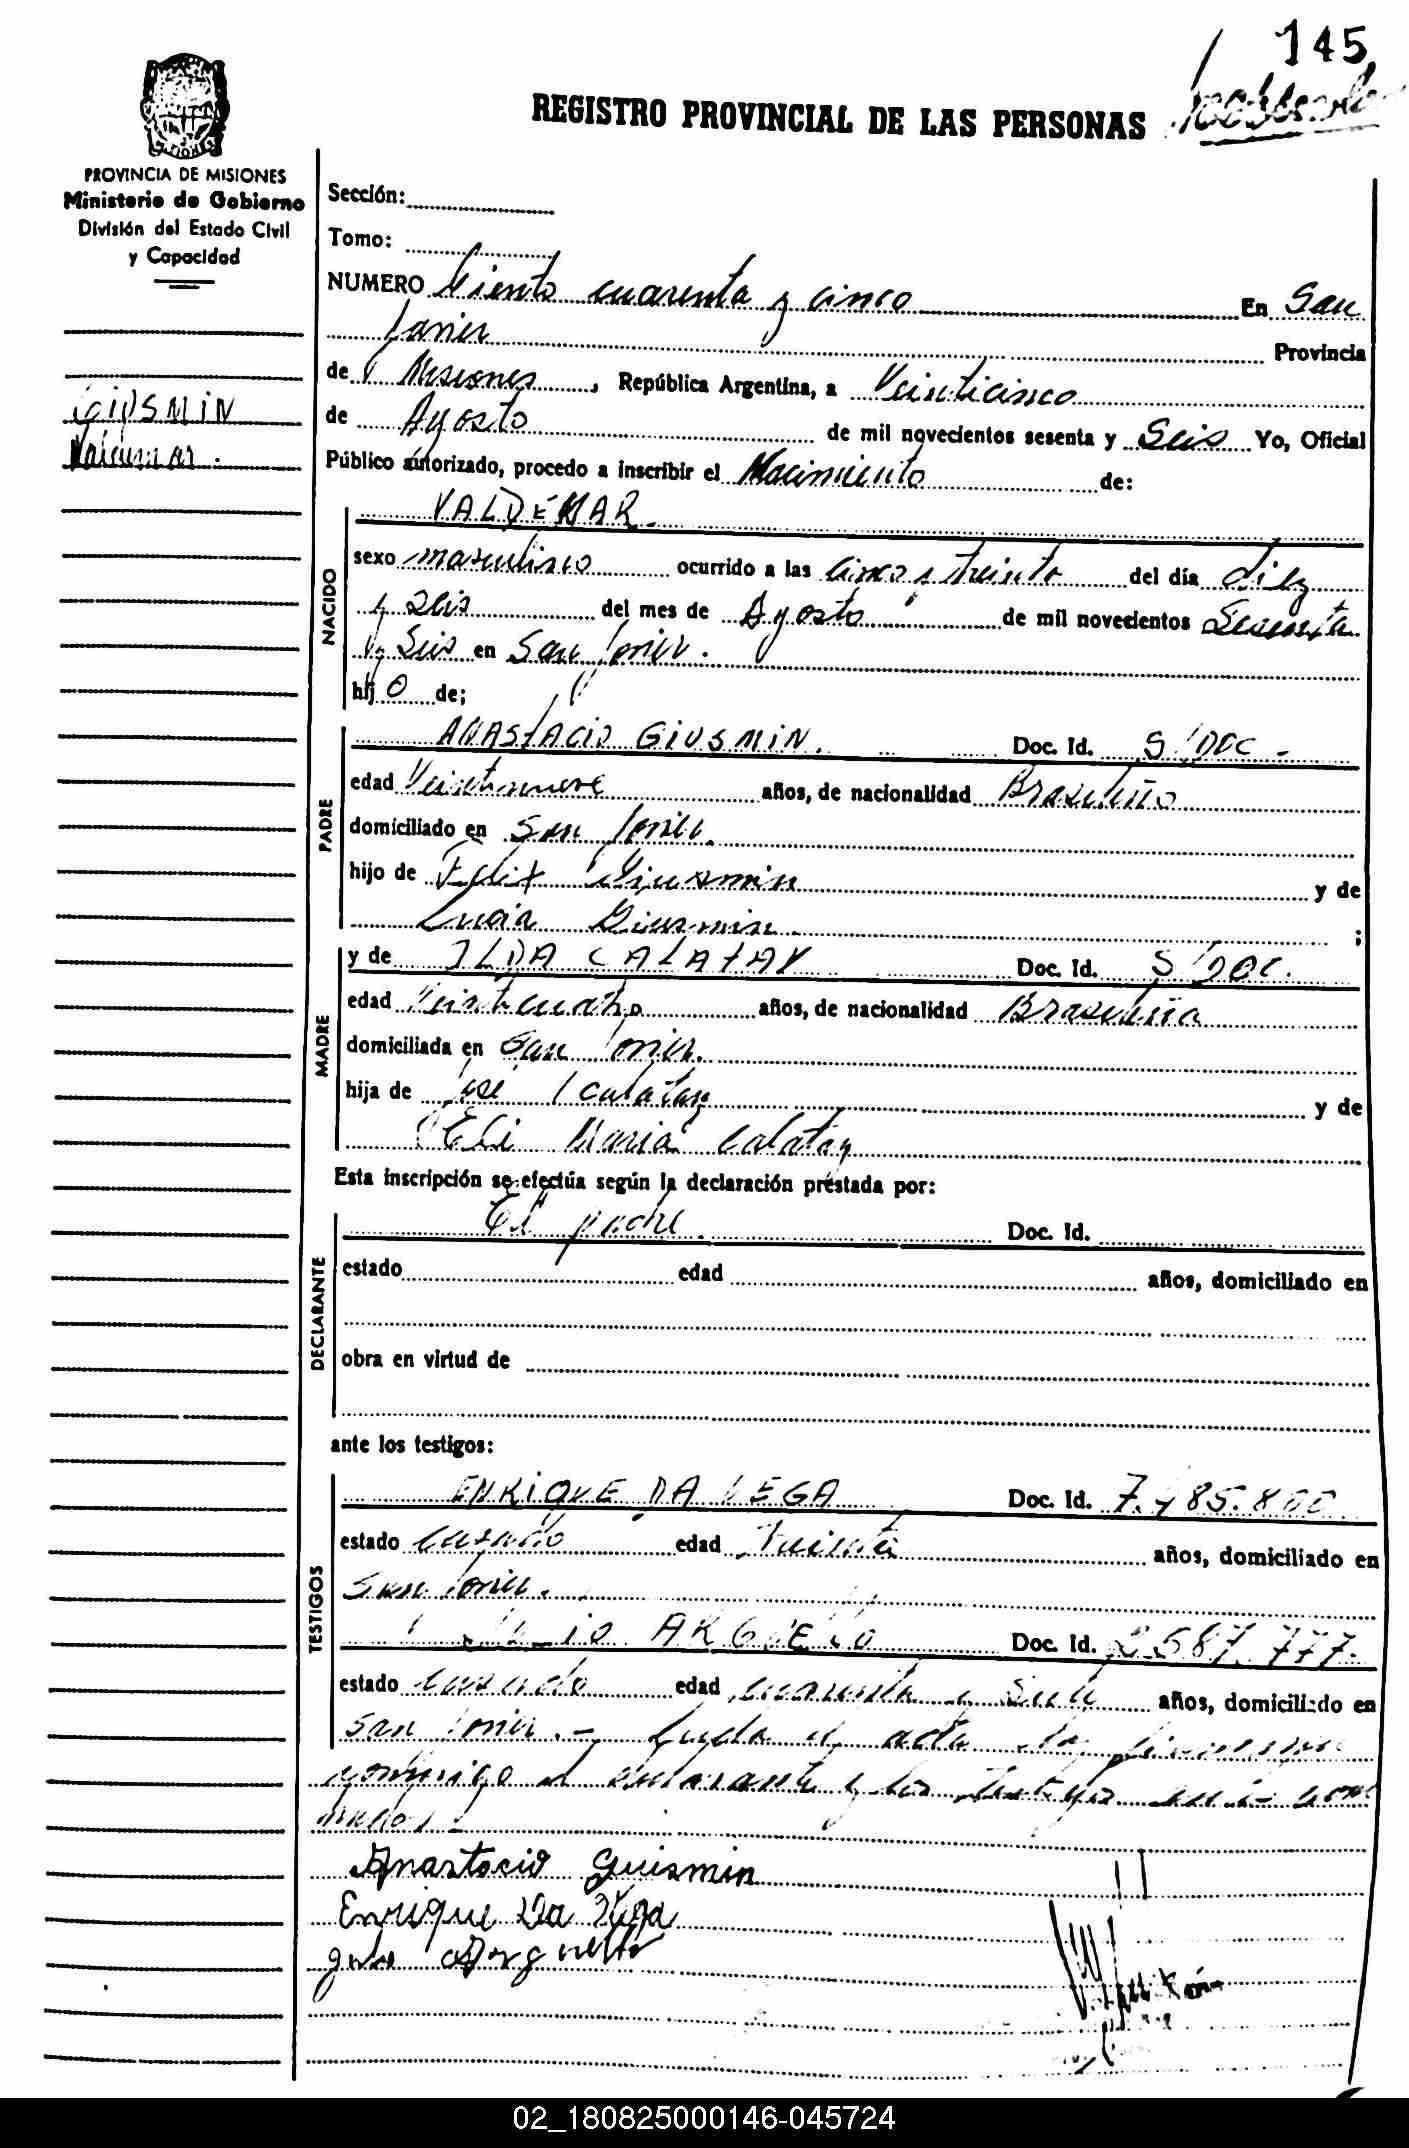 145
REGISTRO PROVINCIAL DE LAS PERSONAS
PROVINCIA DE MISIONES
Ministerio de Gobierno
División del Estado Civil
y Capacidad
GIUSMIN
Valdemar.
Sección:
Tomo:
NUMERO Ciento cuarenta y cinco En San
Javier Provincia
de Misiones, República Argentina, a Veinticinco
de Agosto de mil novecientos sesenta y Seis Yo, Oficial
Público autorizado, procedo a inscribir el Nacimiento de:
NACIDO
VALDEMAR.
sexo masculino ocurrido a las cinco y treinta del día diez
y seis del mes de Agosto de mil novecientos Sesenta
y Seis en San Javier.
hijo de;
PADRE
ANASTACIO GIUSMIN. Doc. Id. S/DOC -
edad Veintinueve años, de nacionalidad Brasileño
domiciliado en San Javier.
hijo de Felix Giusmin y de
Lucia Giusmin. ;
MADRE
y de ILDA CALATAY Doc. Id. S/DOC.
edad Veinticuatro años, de nacionalidad Brasileña
domiciliada en San Javier.
hija de José Calatay y de
Eli Maria Calatay
Esta inscripción se efectúa según la declaración prestada por:
DECLARANTE
El padre. Doc. Id.
estado edad años, domiciliado en
obra en virtud de
ante los testigos:
TESTIGOS
ENRIQUE DA VEGA Doc. Id. 7.485.800
estado casado edad Treinta años, domiciliado en
San Javier.
JULIO ARGUELLO Doc. Id. 2.587.777-
estado casado edad cuarenta y Seis años, domiciliado en
San Javier. - Leyda el acta la
conmigo el declarante y los testigos
Anastacio Guismin
Enrique Da Vega
Arguello
02_180825000146-045724